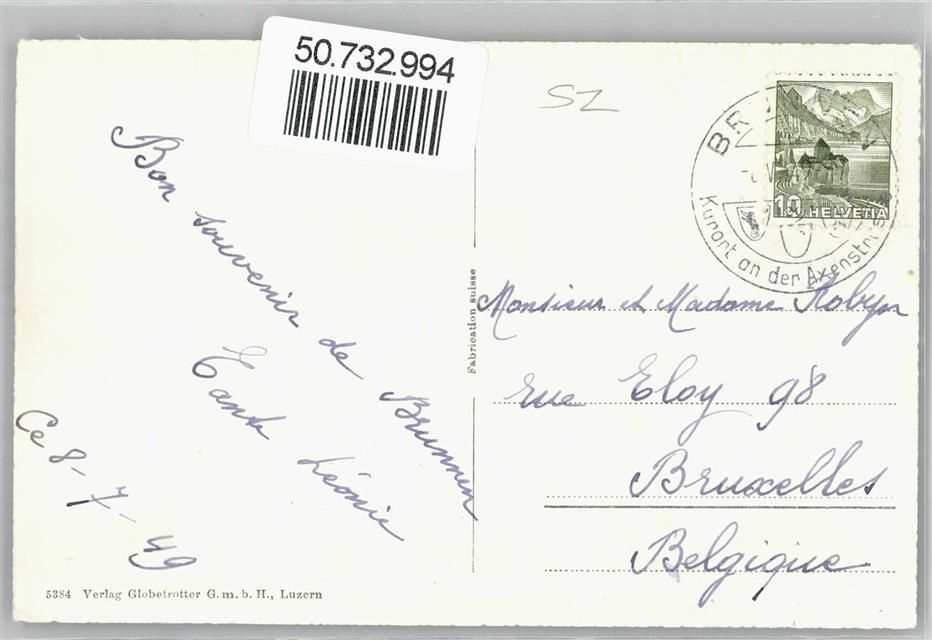 50.732.994
SZ
Kurort an der Axenstr
10 HELVETIA
Bon souvenir de Brunnen
Tante Léonie
Ce 8-7-49
Fabrication suisse
Monsieur et Madame Robyn
rue Eloy 98
Bruxelles
Belgique
5384 Verlag Globetrotter G.m.b.H., Luzern